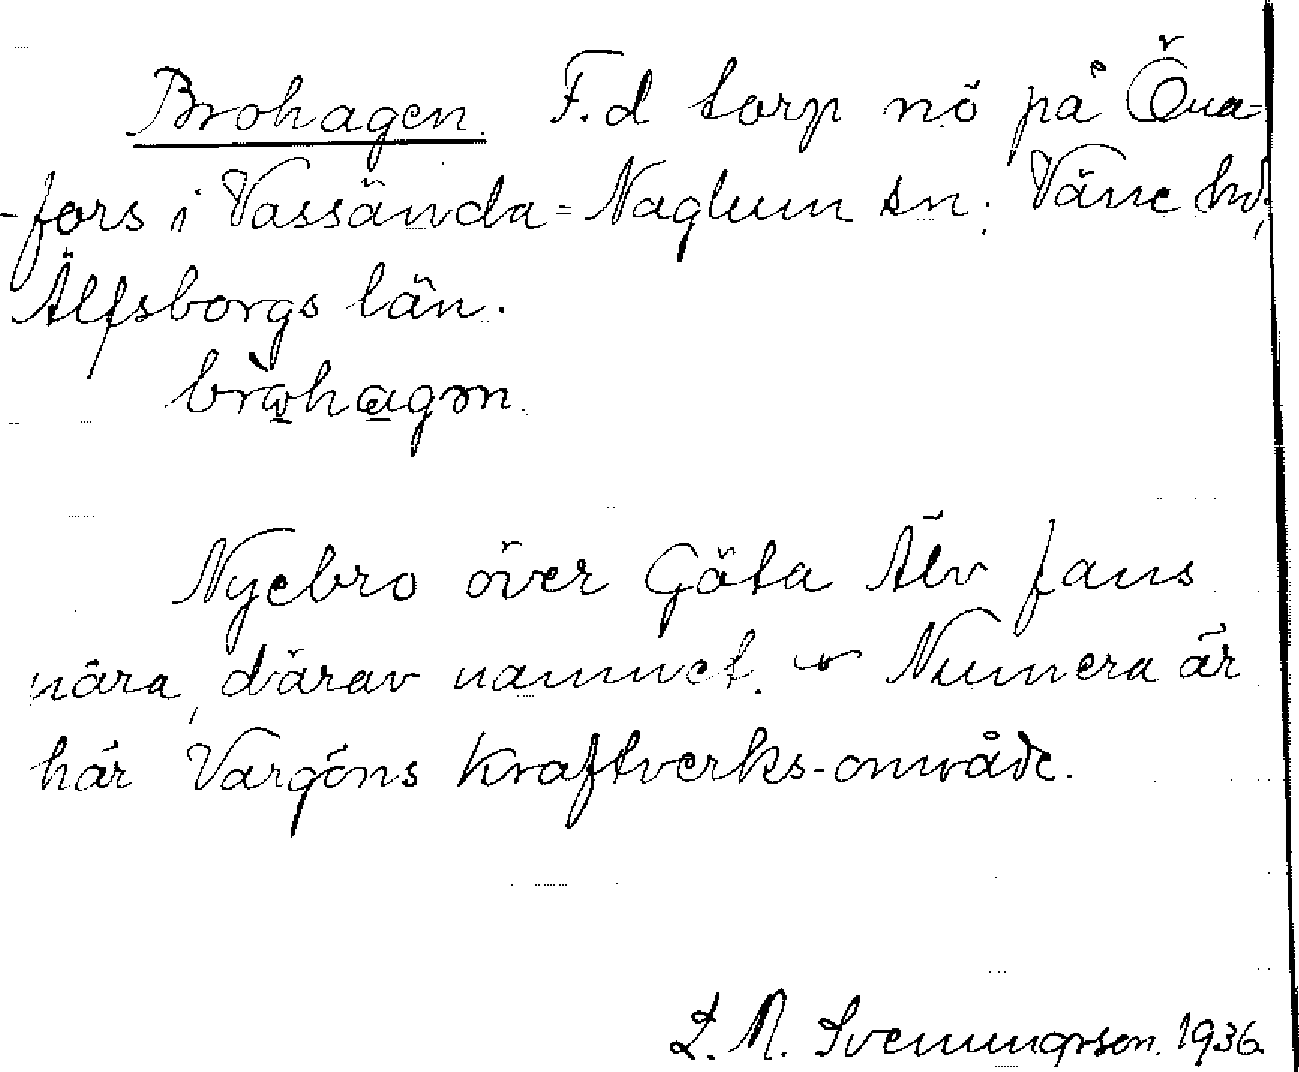 Brohagen. F.d torp nö på Öna-
-fors i Vassända-Naglum sn. Väne hd,
Älfsborgs län.
bròhagən.
Nyebro över Göta Älv fans
nära, därav namnet. Numera är
här Vargöns Kraftverks-område.
L. M. Svenungsson. 1936.